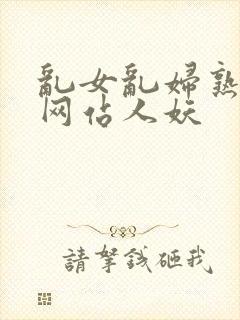 亂女亂婦熟
网佔人妖
請拏錢砸我